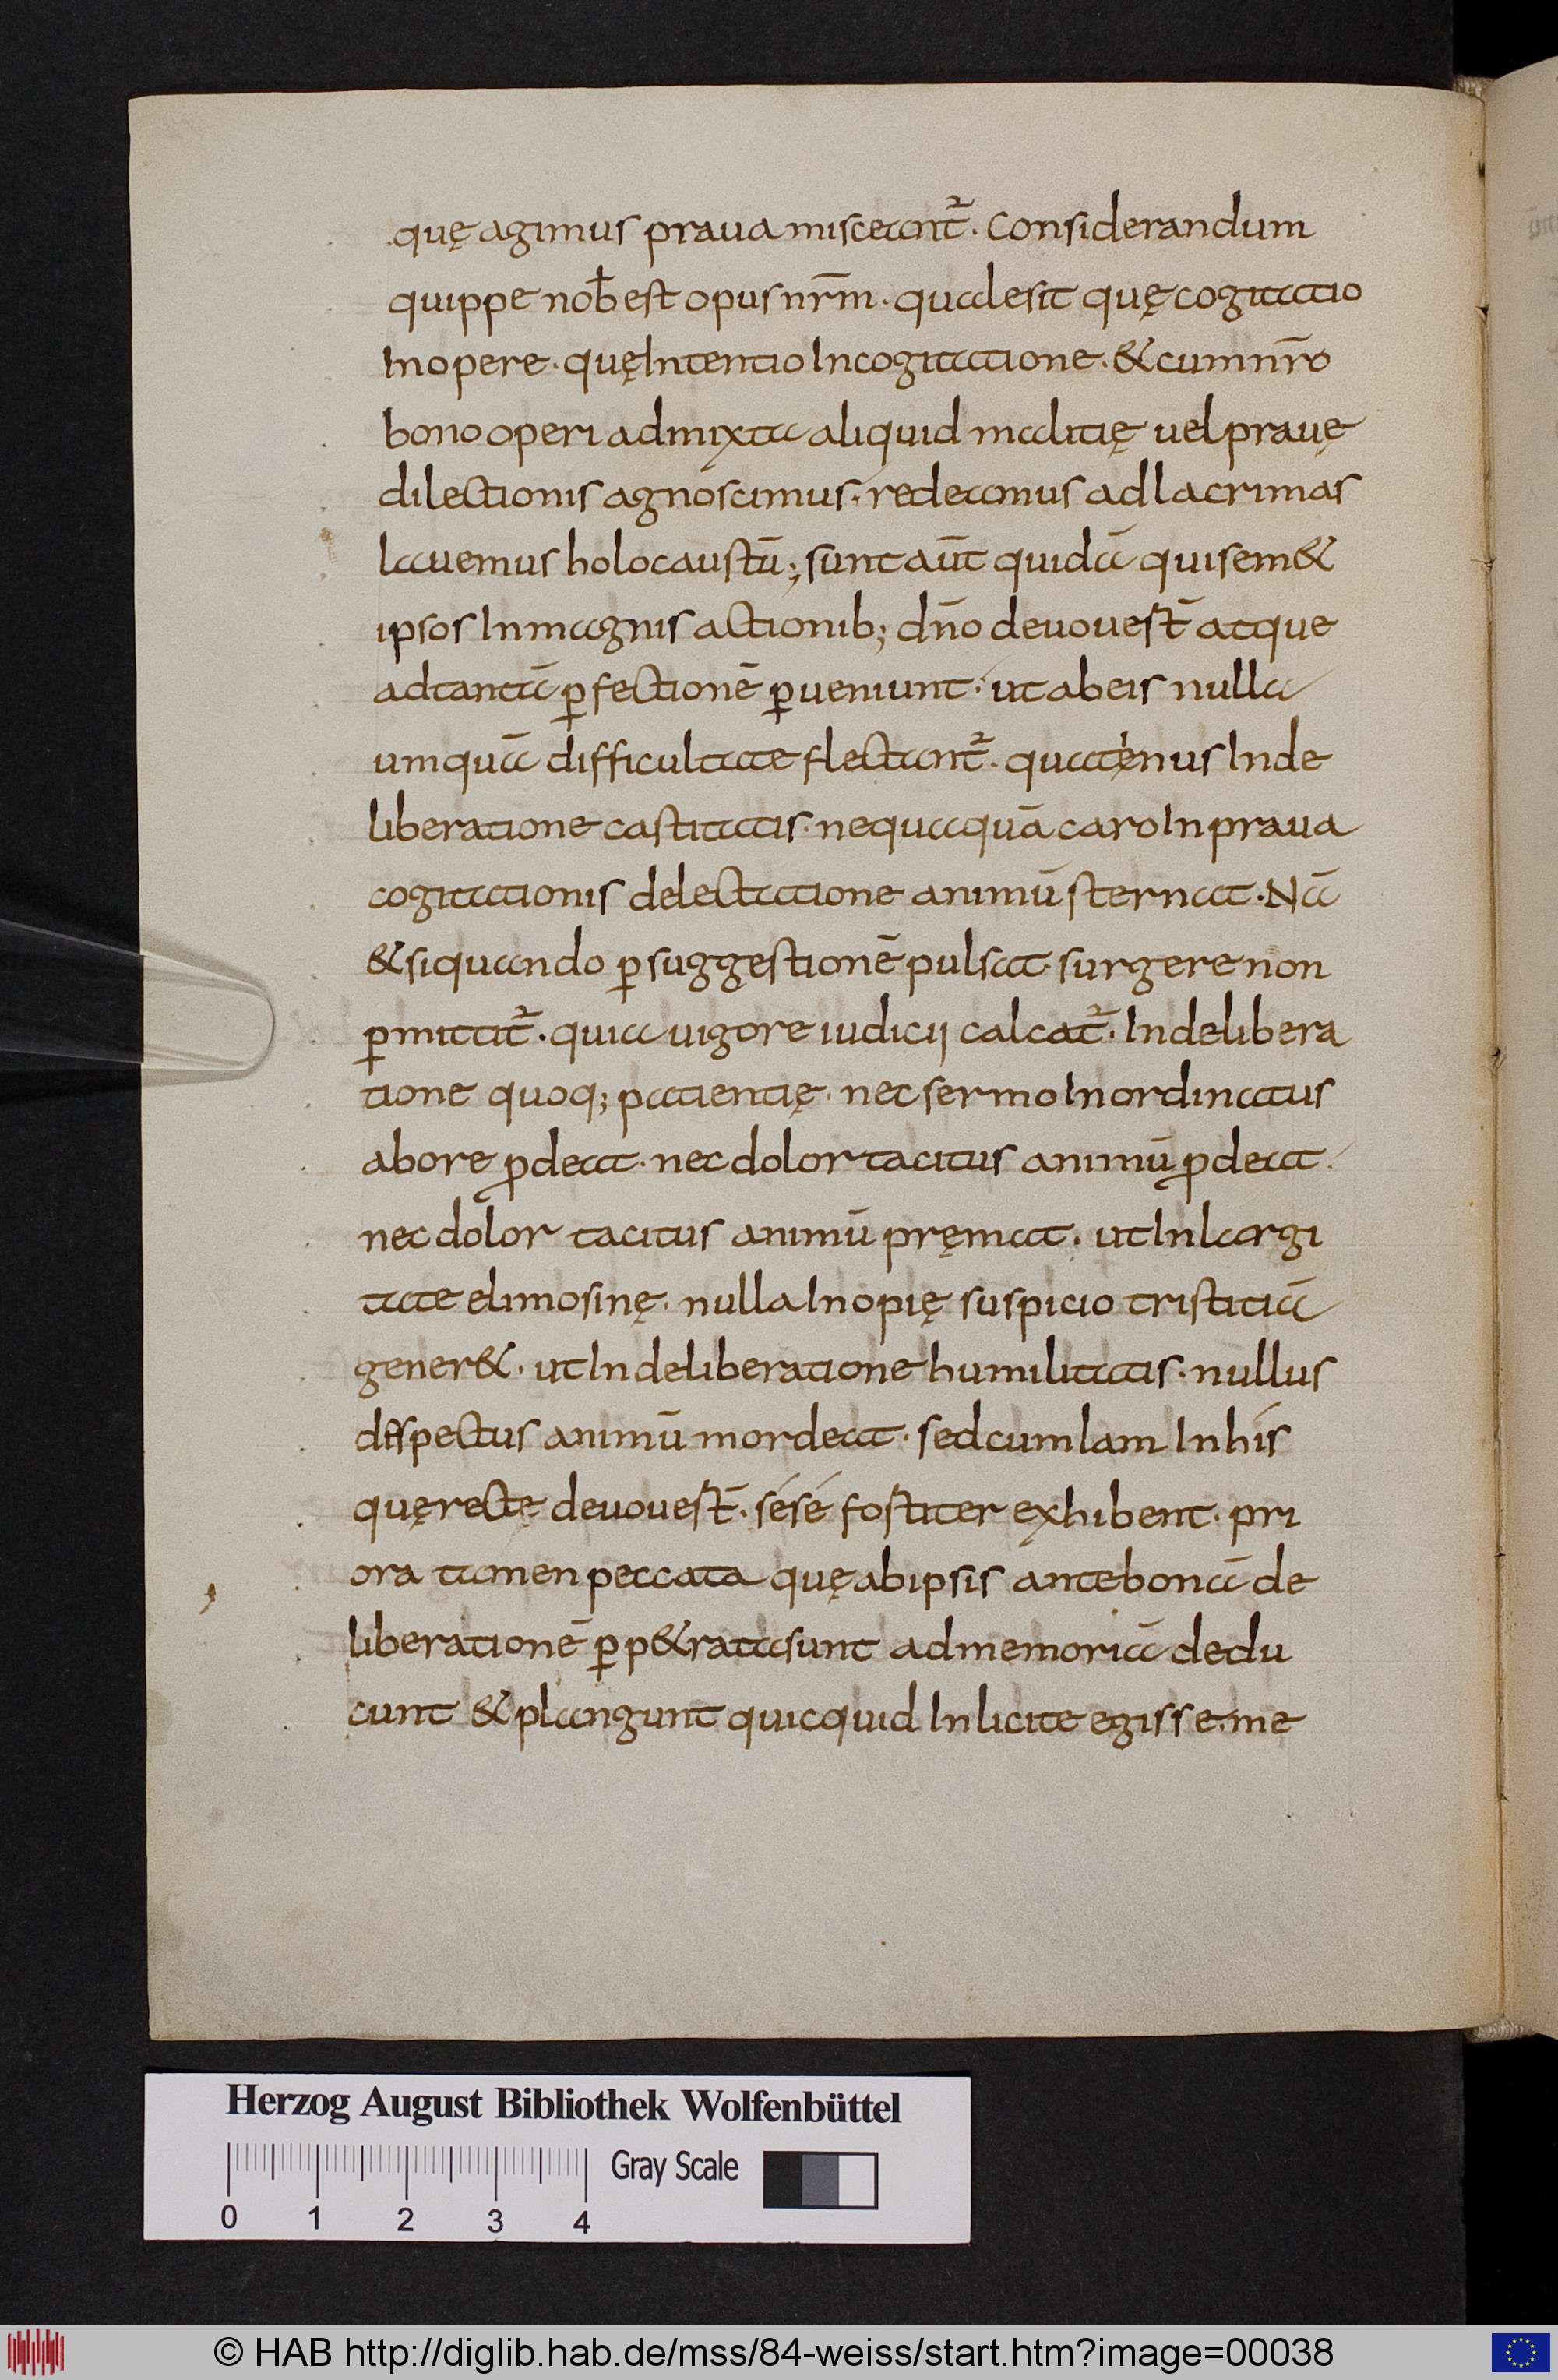 quę agimus praua misceant᷑. Considerandum
quippe nob̄ est opus nr̄m. quale sit quę cogitatio
In opere. quę Intentio In cogitatione. & cum nr̄o
bono operi admixta aliquid malitię uel prauę
dilectionis agnóscimus. redeamus ad lacrimas
lauemus holocaustū; sunt aūt quidā qui sem&
ipsos In magnis actionib; dn̄o deuouest̄ atque
ad tantā ꝑfectionē ꝑueniunt. ut ab eis nulla
umquā difficultate flectant᷑. quatęnus In de
liberatione castitatis. nequaquā caro In praua
cogitationis delectatione animū sternat. Nā
& si quando ꝑ suggęstionē pulsat. surgere non
ꝑmittit᷑. quia uigore iudicij calcat᷑. In delibera
tione quoq; patientię. nec sermo Inordinatus
ab ore ꝓdeat. nec dolor tacitus animū ꝓdeat.
nec dolor tacitus animū pręmat. ut In largi
tate elimosinę. nulla Inopię suspicio tristitiā
gener&. ut In deliberatione humilitatis. nullus
dispectus animū mordeat. sed cum Iam In his
quę recte deuouest̄. sésé fostiter exhibent. pri
ora tamen peccata quę ab ipsis ante bonā de
liberationē ꝑp&rata sunt ad memoriā dedu
cunt & plangunt quicquid Inlicite egisse me
Herzog August Bibliothek Wolfenbüttel
Gray Scale
0 1 2 3 4
© HAB http://diglib.hab.de/mss/84-weiss/start.htm?image=00038